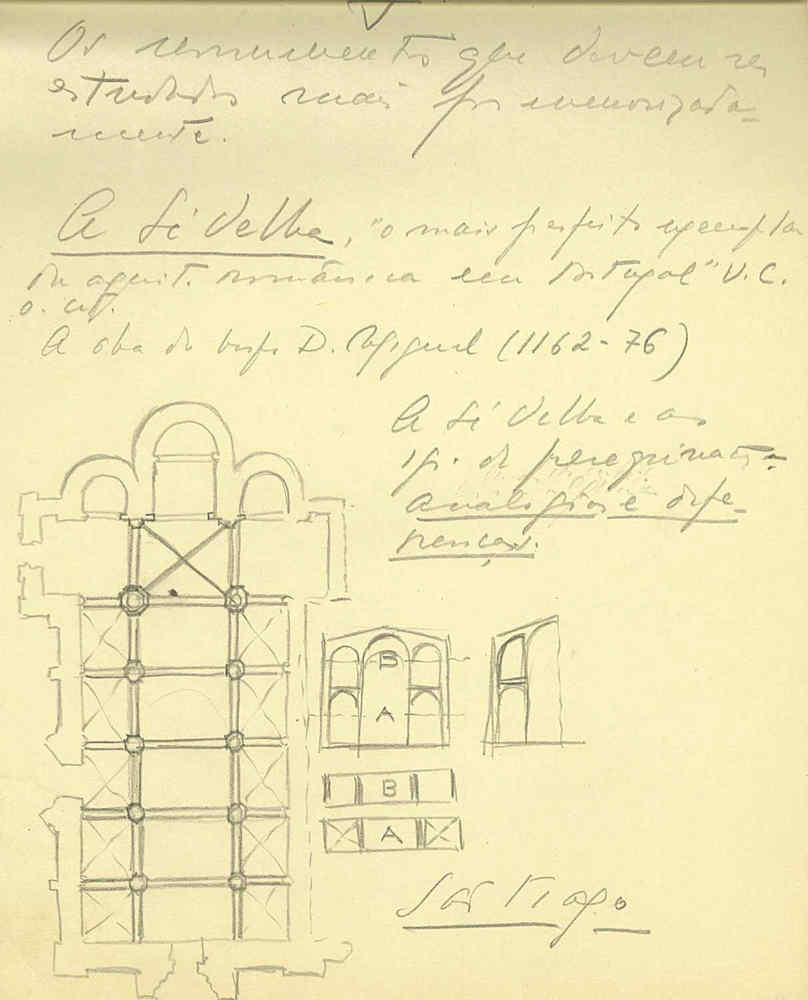 Os monumentos que devem ser
estudados mais pormenorizada-
mente.
A Sé Velha, "o mais perfeito exemplar
da arquit. românica em Portugal" V. C.
o. cit.
A obra do bispo D. Miguel (1162-76)
A Sé Velha e as
igr. de peregrinação
analogias e dife-
renças.
B
A
B
A
Santiago